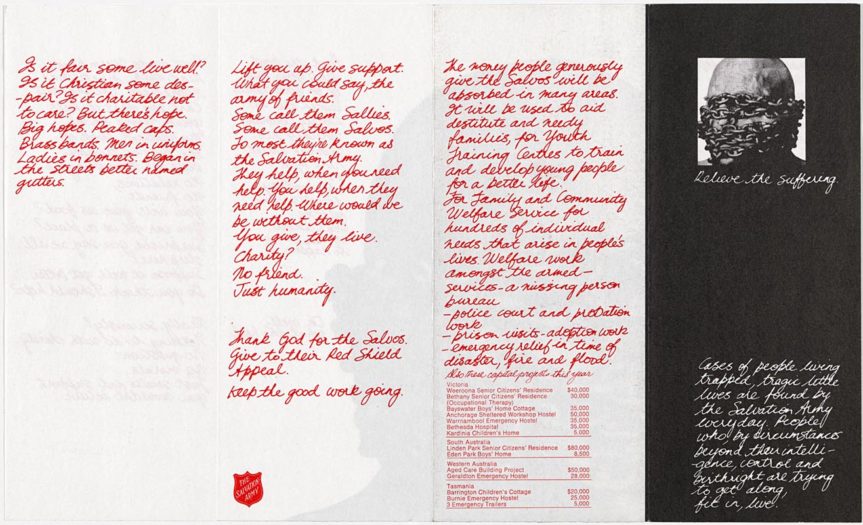 Is it fair some live well?
Is it Christian some des-
-pair? Is it charitable not
to care? But there's hope.
Big hopes. Peaked caps.
Brass bands. Men in uniforms.
Ladies in bonnets. Began in
the streets better named
gutters.
Lift you up. Give support.
What you could say, the
army of friends.
Some call them Sallies.
Some call them Salvos.
To most they're known as
the Salvation Army.
They help, when you need
help. You help, when they
need help. Where would we
be without them.
You give, they live.
Charity?
No friend.
Just humanity.
Thank God for the Salvos.
Give to their Red Shield
Appeal.
Keep the good work going.
THE
SALVATION
ARMY
The money people generously
give the Salvos will be
absorbed in many areas.
It will be used to aid
destitute and needy
families, for Youth
Training Centres to train
and develop young people
for a better life.
For Family and Community
Welfare Service for
hundreds of individual
needs that arise in people's
lives. Welfare work
amongst the armed-
services - a missing person
bureau
- police court and probation
work
- prison visits - adoption work
- emergency relief in time of
disaster, fire and flood.
Also these capital projects this year
Victoria
Weeroona Senior Citizens' Residence $40,000
Bethany Senior Citizens' Residence 30,000
(Occupational Therapy)
Bayswater Boys' Home Cottage 35,000
Anchorage Sheltered Workshop Hostel 50,000
Warrnambool Emergency Hostel 35,000
Bethesda Hospital 35,000
Kardinia Children's Home 5,000
South Australia
Linden Park Senior Citizens' Residence $80,000
Eden Park Boys' Home 8,500
Western Australia
Aged Care Building Project $50,000
Geraldton Emergency Hostel 28,000
Tasmania
Barrington Children's Cottage $20,000
Burnie Emergency Hostel 25,000
3 Emergency Trailers 5,000
Relieve the suffering.
Cases of people living
trapped, tragic little
lives are found by
the Salvation Army
everyday. People
who by circumstances
beyond their intelli-
-gence, control and
birthright are trying
to get along,
fit in, live.